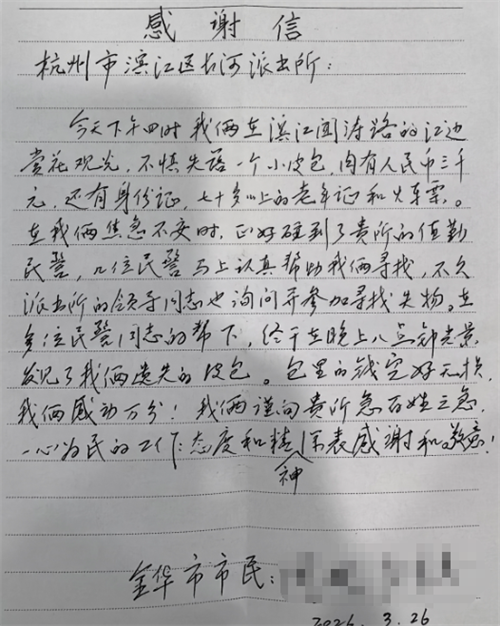 感谢信
杭州市滨江区长河派出所：
今天下午四时我俩在滨江闻涛路的江边
赏花观光，不慎失落一个小皮包，内有人民币三千
元，还有身份证，七十岁以上的老年证和火车票。
在我俩焦急不安时，正好碰到了贵所的值勤
民警，几位民警马上认真帮助我俩寻找，不久
派出所的领导同志也询问并参加寻找失物。在
多位民警同志的帮下，终于在晚上八点钟光景，
发见了我俩遗失的皮包。包里的钱完好无损，
我俩感动万分！我俩谨向贵所急百姓之急，
一心为民的工作态度和精神深表感谢和敬意！
金华市市民：
2026.3.26